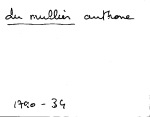 du mullier anthone
1790 - 34